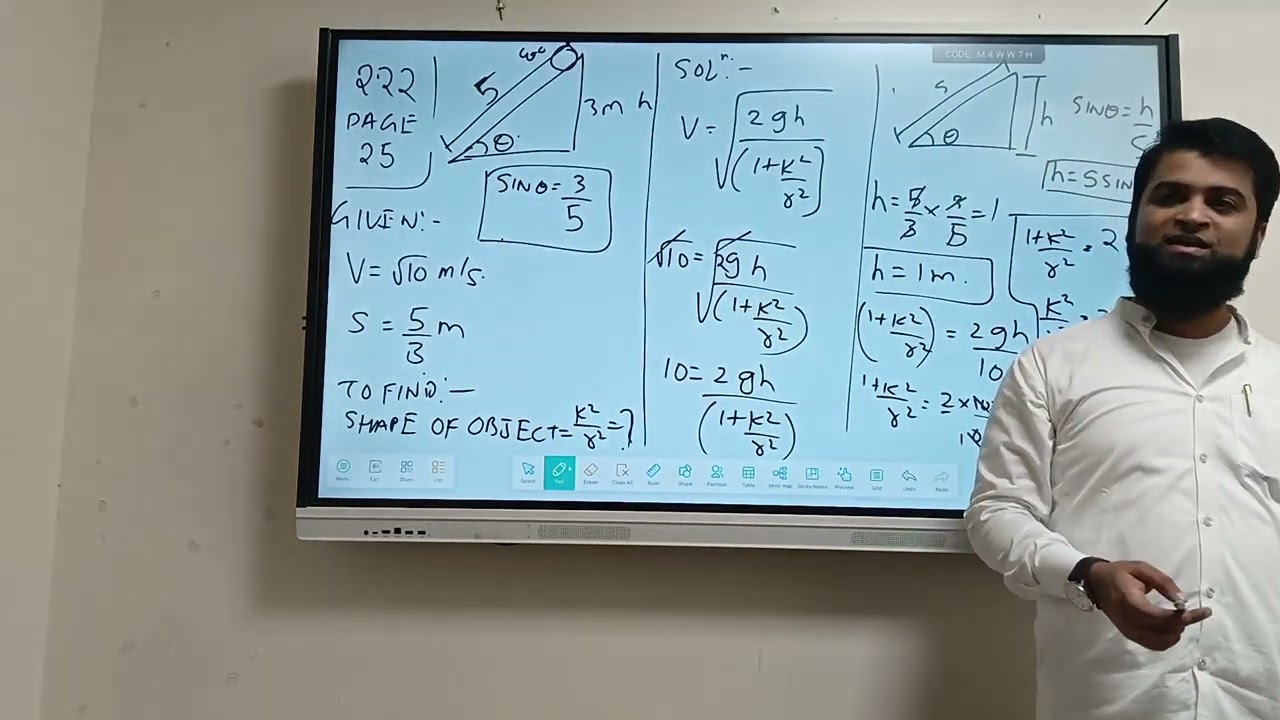 CODE: M4WW7H
2.22
PAGE
25
5
3m h
θ
SINθ = 3/5
GIVEN:-
V = √10 m/s.
S = 5/3 m
TO FIND:-
SHAPE OF OBJECT = K²/r² = ?
SOLⁿ:-
V = √(2gh/(1+K²/r²))
√10 = √(2gh/(1+K²/r²))
10 = 2gh/(1+K²/r²)
s
θ
h
SINθ = h/
h = SSIN
h = 5/3 × 3/5 = 1
h = 1m.
(1+K²/r²) = 2gh/10
1+K²/r² = 2 ×
1+K²/r² = 2
K²
Menu
Exit
Share
List
Select
Pen
Eraser
Clean All
Ruler
Shape
Partition
Table
Mind map
Sticky Notes
Preview
Grid
Undo
Redo